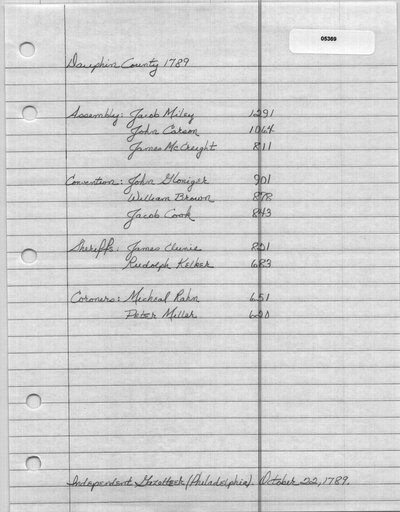 05369
Dauphin County 1789
Assembly: Jacob Miley 1291
John Carson 1064
James McCreight 811
Convention: John Gloniger 901
William Brown 878
Jacob Cook 843
Sheriffs: James Clunie 821
Rudolph Kelker 683
Coroners: Micheal Rahn 651
Peter Miller 620
Independent Gazetteer (Philadelphia). October 22, 1789.